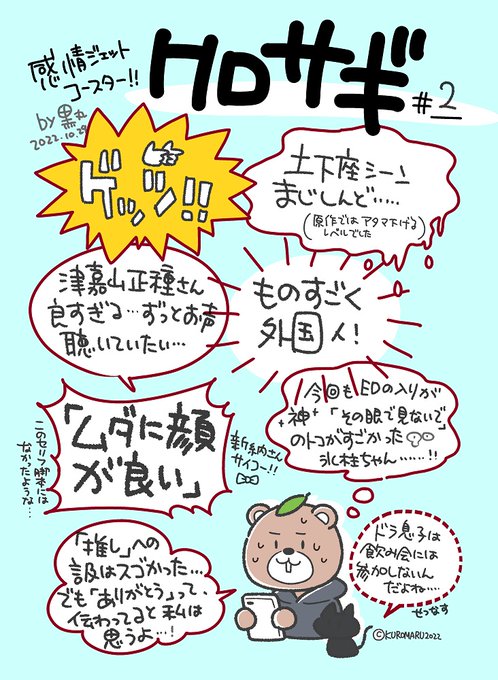 感情ジェット
コースター!!
クロサギ
#2
by 黒丸
2022.10.29
ゲッツ!!
土下座シーン
まじしんど.....
(原作ではアタマ下げる
レベルでした)
津嘉山正種さん
良すぎる…ずっとお声
聴いていたい…
ものすごく
外国人!
「ムダに顔
が良い」
このセリフ脚本には
なかったような…
新納さん
サイコー!!
今回もEDの入りが
神「その眼で見ないで」
のトコがすごかった
氷柱ちゃん……!!
「推し」への
説はスゴかった…
でも「ありがとう」って、
伝わってると私は
思うよ…!
ドラ息子は
飲み会には
参加しないん
だよね…
せつなす
©KUROMARU2022